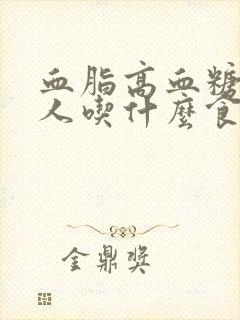 血脂高血糖
人喫什麼食
金鼎獎